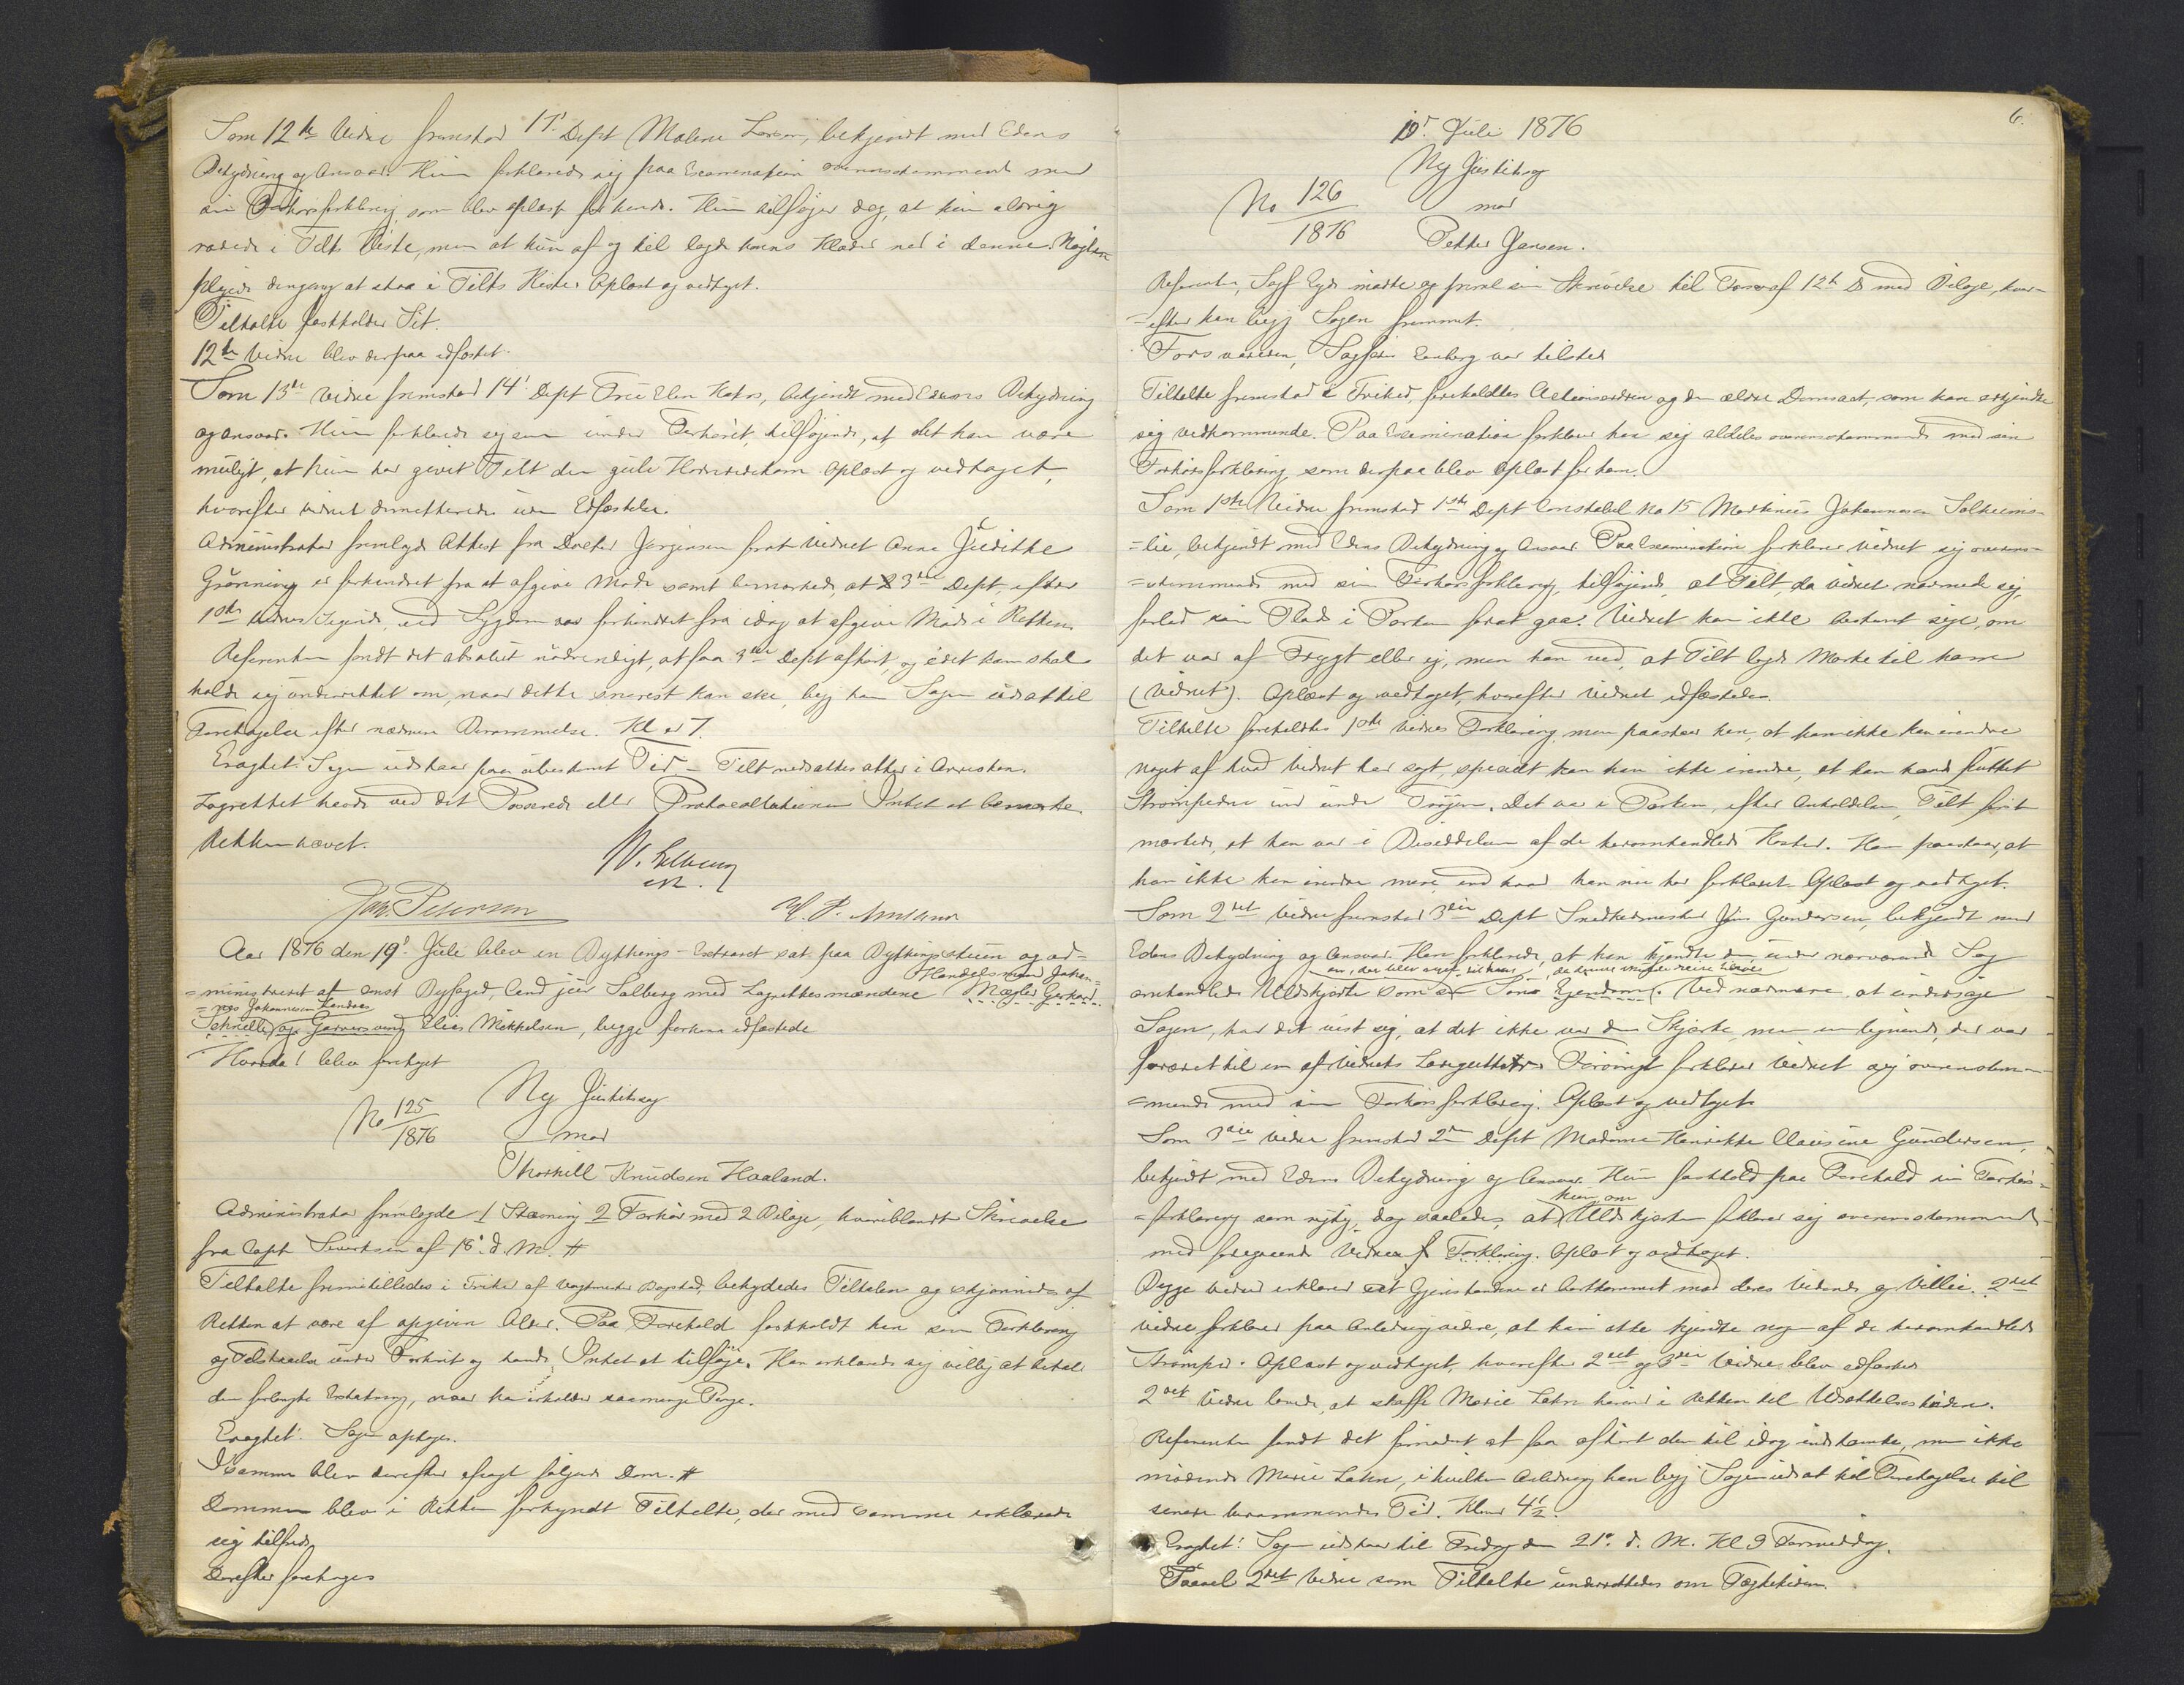 Som 12te Vidne fremstod 17' Dept Malene Larsen, bekjendt med Edens
Betydning og Ansvar. Hun forklarede sig paa Examination overensstemmende med
sin Forhørsforklaring, som blev oplæst for hende. Hun tilføjer dog, at hun aldrig
rodede i Tilts Kiste, men at hun af og til lagde hans Klæder ned i denne. Nøglen
plejede dengang at staa i Tilts Kiste. Oplæst og vedtaget.
Tiltalte fastholder Sit.
12te Vidne blev derpaa edfæstet.
Som 13de Vidne fremstod 14' Dept Frue Elen Hahr, bekjendt med Edens Betydning
og Ansvar. Hun forklarede sig som under Forhøret, tilføjende, at det kan være
muligt, at hun har givet Tilt den gule Oplæst og vedtaget,
hvorefter Vidnet dimitteredes uden Edfæstelse.
Administrator fremlagde Attest fra Doctor Jørgensen forat Vidnet Anna Judithe
Grønning er forhindret fra at afgive Møde samt bemærkede, at 23de Dept, efter
1ste Vidnes Sigende, ved Sygdom var forhindret fra idag at afgive Møde i Retten.
Referenten fandt det absolut nødvendigt, at faa 3die Dept afhørt, og idet han skal
holde sig underrettet om, naar dette snarest kan ske, begj han Sagen udsat til
Foretagelse efter nærmere Berammelse. Kl er 7.
Eragtet: Sagen udstaar paa ubestemt Tid. – Tilt nedsattes atter i Arresten.
Lagrettet havde ved det Passerede eller Protocollationen Intet at bemærke.
Retten hævet.
Joh. Petersen
Aar 1876 den 19' Juli blev en Bythings-Extraret sat paa Bythingsstuen og ad-
Handelsmand Johan-
=ministreret af const Byfoged, Cand jur Salberg med Lagrettesmændene Mægler Gerhard
=nes Johannesen Landaas
Schnelle og Garversvend Elias Mikkelsen, begge forhen edfæstede
Hvorda! blev foretaget
No 125/1876 Ny Justitssag
mod
Thorkill Knudsen Haaland.
Administrator fremlagde 1 Stævning 2 Forhør med 2 Bilage, hvoriblandt Skrivelse
fra Capt Sivertsen af 18' d. M. #
Tiltalte fremstilledes i Frihed af Vagtmester Bogstad, betydedes Tiltalen og skjønnedes af
Retten at være af opgiven Alder. Paa Forehold fastholdt han sin Forklaring
og Tilstaaelse under Forhøret og havde Intet at tilføje. Han erklærede sig villig at betale
den forlangte Erstatning, naar han erholder saamange Penge.
Eragtet: Sagen optages.
I samme blev derefter afsagt følgende Dom. #
Dommen blev i Retten forkyndt Tiltalte, der med samme erklærede
sig tilfreds
Derefter foretages
6.
19' Juli 1876
Ny Justitssag
No 126/1876 mod
Petter Jansen.
Referenten, Sagf Egde mødte og freml sin Skrivelse til Forsv af 12te ds med Bilage, hvor-
=efter han begj Sagen fremmet.
Forsvareren, Sagfører Enberg var tilstede
Tiltalte fremstod i Frihed, foreholdtes Actionsordren og den ældre Domsact, som han erkjendte
sig vedkommende. Paa Examination forklarer han sig aldeles overensstemmende med sin
Forhørsforklaring, som derpaa blev oplæst for ham.
Som 1ste Vidne fremstod 1ste Dept Constabel No 15 Martinus Johannesen Solheims-
=lie, bekjendt med Edens Betydning og Ansvar. Paa Examination forklarer Vidnet sig overens-
=stemmende med sin Forhørsforklaring, tilføjende, at Tilt, da Vidnet nærmede sig,
forlod sin Plads i Porten forat gaa. Vidnet kan ikke bestemt sige, om
det var af Frygt eller ej, men han ved, at Tilt lagde Mærke til ham
(Vidnet). Oplæst og vedtaget, hvorefter Vidnet edfæstedes.
Tiltalte foreholdtes 1ste Vidnes Forklaring, men paastaar han, at han ikke kan erindre
noget af hvad Vidnet har sagt, specielt kan han ikke erindre, at han havde puttet
Strømperne ind under Trøjen. Det var i Porten, efter Anholdelsen, Tilt først
mærkede, at han var i Besiddelsen af de heromhandlede Koster. Han paastaar, at
han ikke kan erindre mere, end hvad han nu har forklaret. Oplæst og vedtaget.
Som 2det Vidne fremstod 3die Dept Snedkermester Jens Gundersen, bekjendt med
Edens Betydning og Ansvar. Han forklarede, at han kjendte den under nærværende Sag
omhandlede Uldskjorte som sin Søns Ejendom. Ved nærmere at undersøge
Sagen, har det vist sig, at det ikke var den Skjorte, men en lignende, der var
foræret til en af Vidnets Læregutter. Forøvrigt forklarer Vidnet sig overensstem-
=mende med sin Forhørsforklaring. Oplæst og vedtaget.
Som 3die Vidne fremstod 2den Dept Madame Henrikke Clausine Gundersen,
bekjendt med Edens Betydning og Ansvar. Hun fastholdt paa Forehold sin Forhørs-
hun om
=forklaring som rigtig, dog saaledes, at Uldskjorten forklarer sig overensstemmende
med foregaaende Vidnes Forklaring. Oplæst og vedtaget.
Begge Vidner erklærer at Gjenstandene er bortkommet mod deres Vidende og Villie. 2det
Vidne forklarer paa Anledning videre, at han ikke kjendte nogen af de heromhandlede
Strømper. Oplæst og vedtaget, hvorefter 2det og 3die Vidne blev edfæstet
2det Vidne lovede, at skaffe Marie Lahn hende i Retten til Udsættelsestiden.
Referenten fandt det fornødent at faa afhørt den til idag indstævnte, men ikke
mødende Marie Lahn, i hvilken Anledning han begj Sagen udsat til Foretagelse til
senere berammendes Tid. Kl er 4½.
Eragtet: Sagen udstaar til Fredag den 21' d. M. Kl 9 Formiddag.
Saavel 2det Vidne som Tiltalte underrettedes om Tægtetiden.